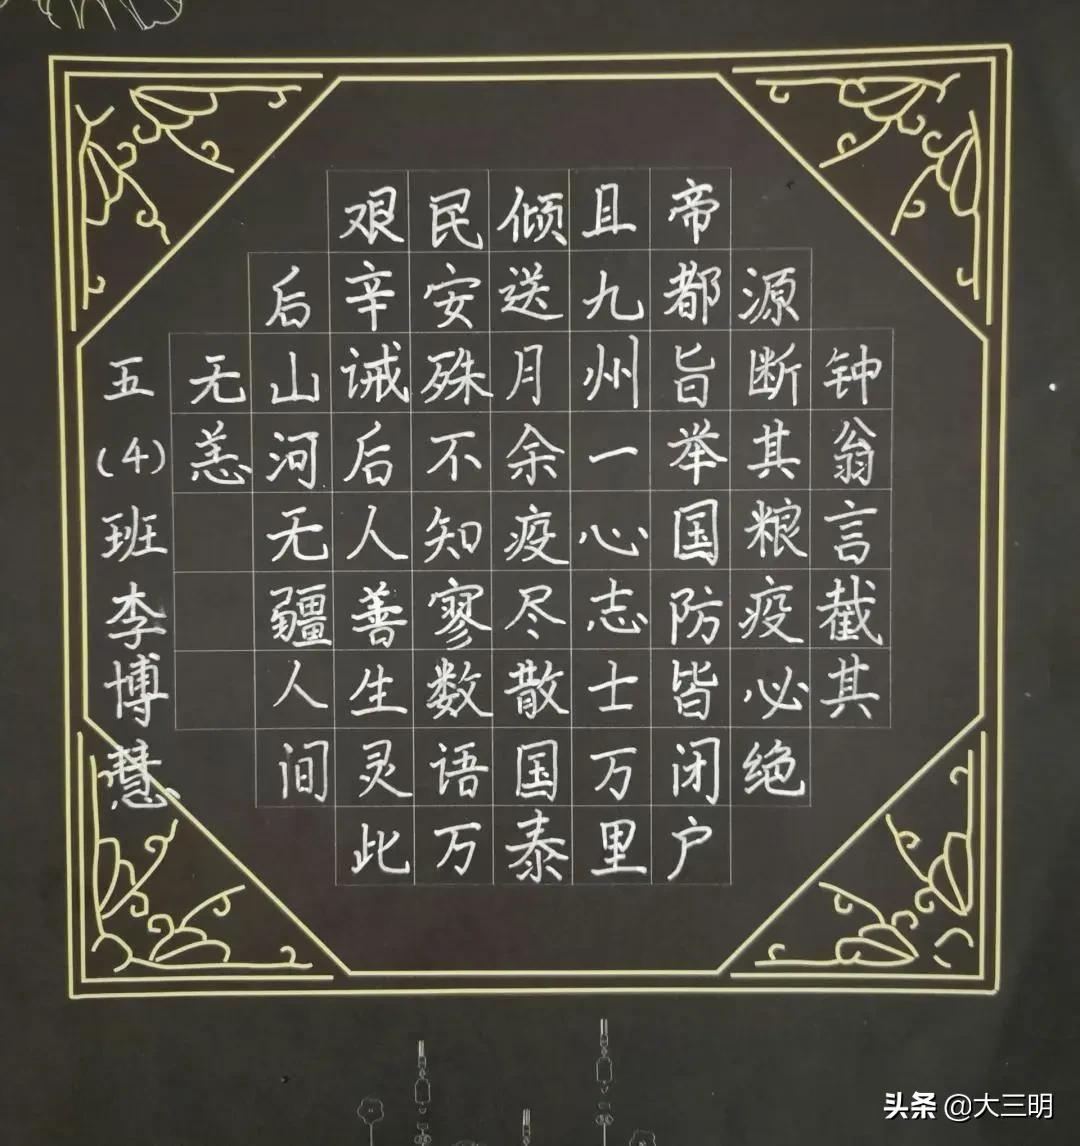 钟翁言截其
源断其粮疫必绝
帝都旨举国防皆闭户
且九州一心志士万里
倾送月余疫尽散国泰
民安殊不知寥数语万
艰辛诫后人善生灵此
后山河无疆人间
无恙
五(4)班李博慧
头条 @大三明